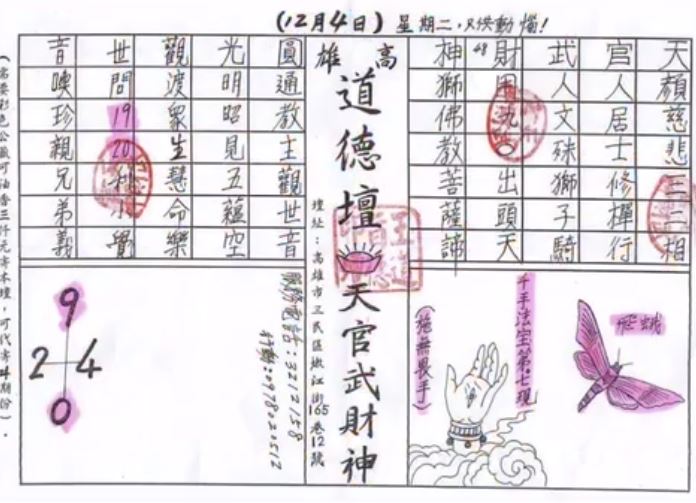 (12月4日)星期二,只供動惱!
天官武財神
顏人人 獅
慈居文 佛
悲士殊 教
三修獅出菩
二禪子頭薩
相行騎天諦
高雄
道德壇 天官武財神
壇址:高雄市三民區 江街165巷12號
圓光觀世音
通明渡間映
教昭眾19珍
主見生20親
觀五慧 兄
世蘊命小弟
音空樂覺義
服務電話:3212158
行動:0978220512
飛蛾
千手法宝第七現
(施無畏手)
9
2 4
0
(需要彩色公 可油香三仟元寄本壇,可代寄4期份)。